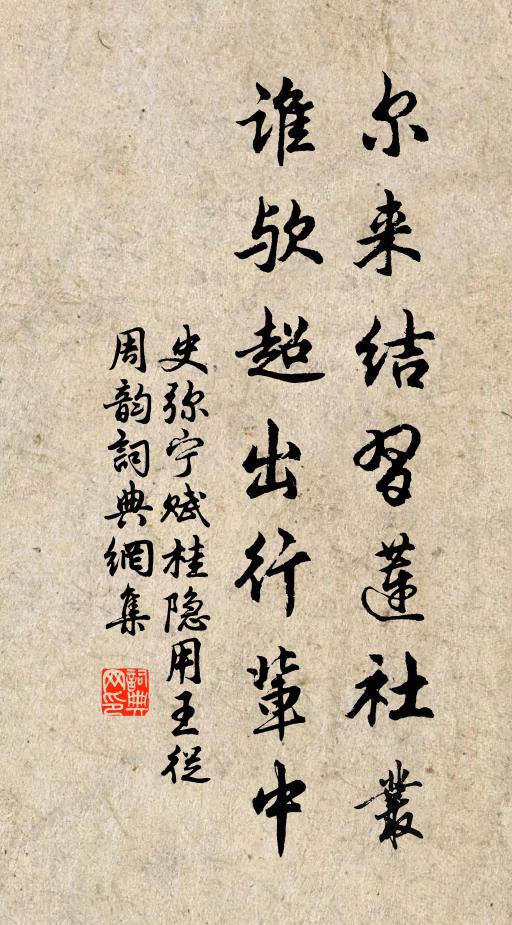 尔来结习莲社丛
谁欤超出行辈中
史弥宁赋桂隐用王从
周韵词典网集
词典网印